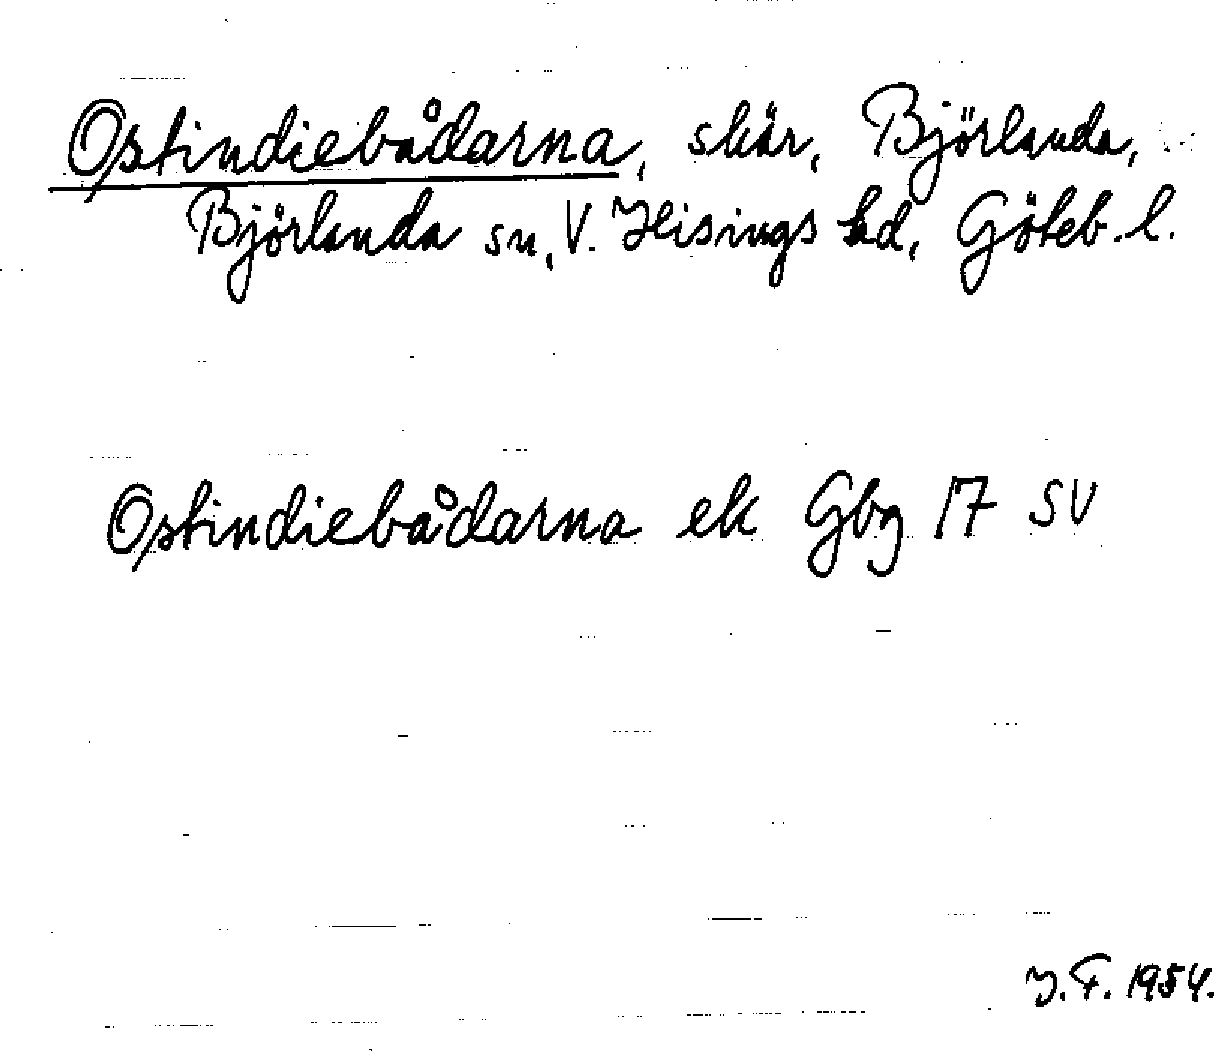 Ostindiebådarna, skär, Björlanda,
Björlanda sn, V. Hisings hd, Göteb. l.
Ostindiebådarna ek Gbg 17 SV
J. F. 1954.